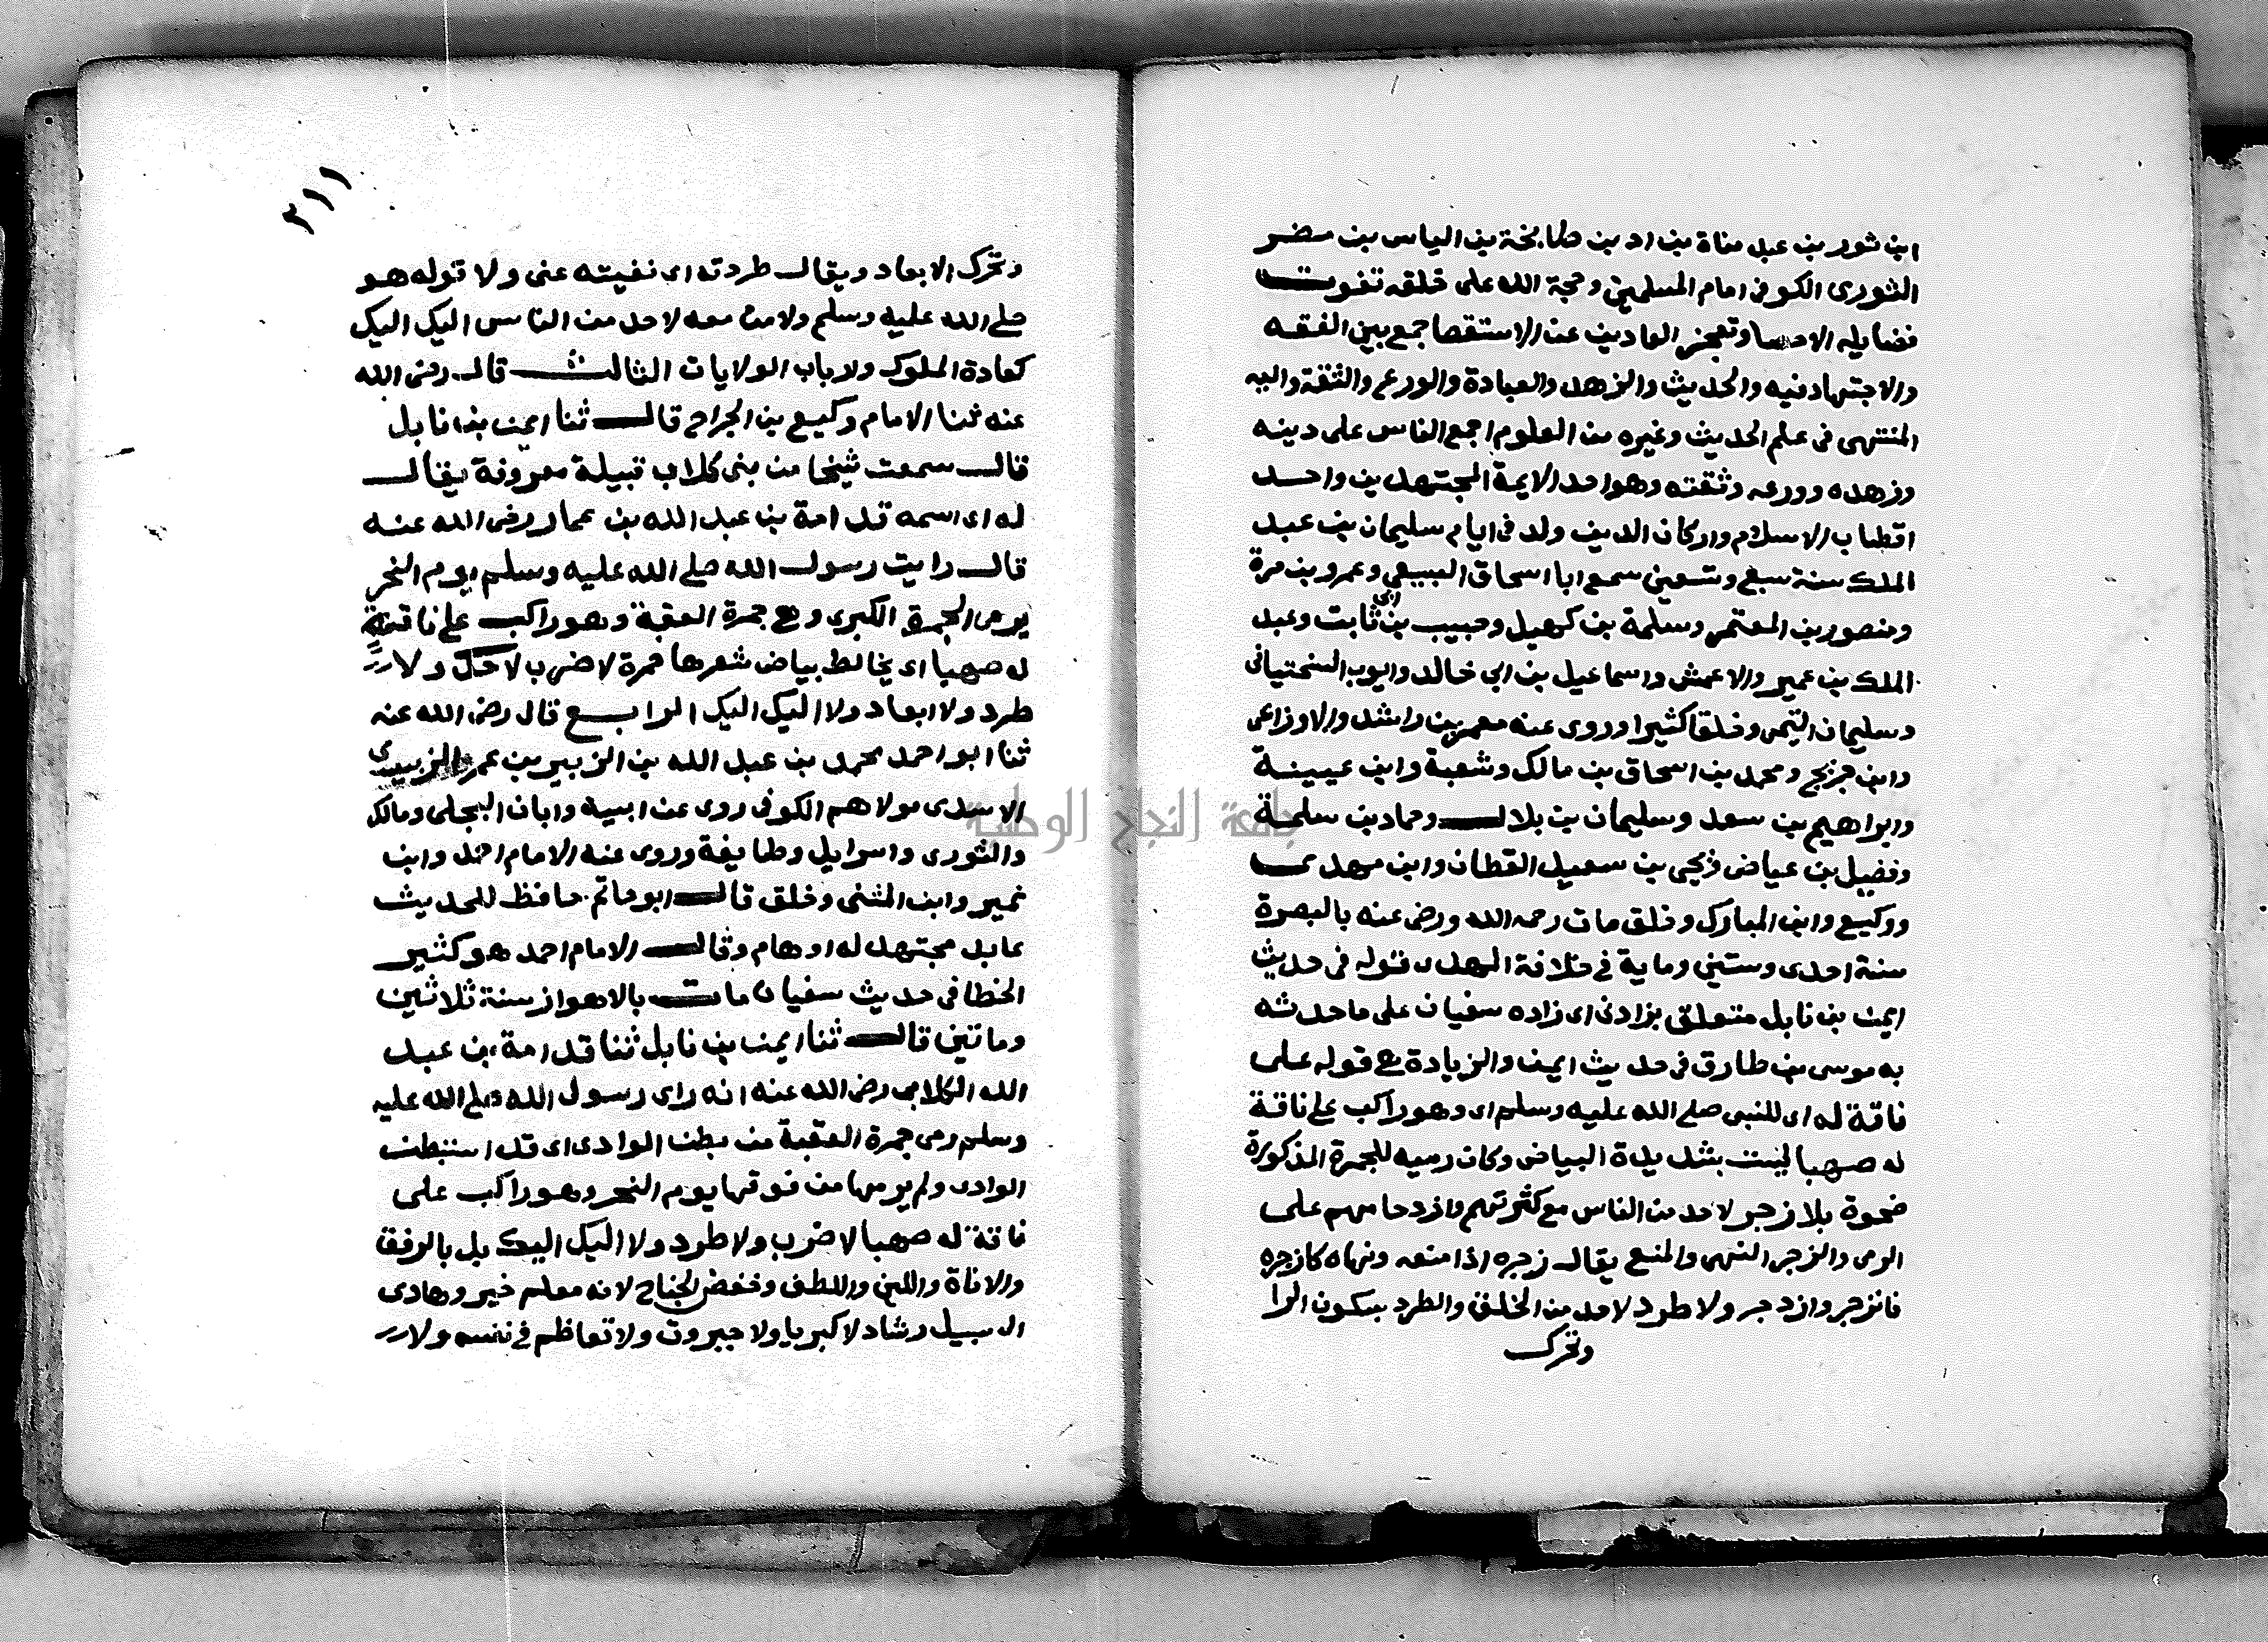 ابن ثور بن عبد مناة بن اد بن طابخة بن الياس بن مضر
الثورى الكوفى امام المسلمين وحجة الله على خلقه تفوت
فضايله الاحصا وتعجز العادين عن الاستقصا جمع بين الفقه
والاجتهاد فيه والحديث والزهد والعبادة والورع والثقة واليه
المنتهى فى علم الحديث وغيره من العلوم اجمع الناس على دينه
وزهده وورعه وثقته وهو احد الايمة المجتهدين واحد
اقطاب الاسلام واركان الدين ولد فى ايام سليمان بن عبد
الملك سنة سبع وتسعين سمع ابا اسحاق السبيعي وعمرو بن مرة
ومنصور بن المعتمر وسلمة بن كهيل وحبيب بن ابى ثابت وعبد
الملك بن عمير والاعمش واسماعيل بن ابي خالد وايوب السختيانى
وسليمان التيمى وخلقا كثيرا وروى عنه معمر بن راشد والاوزاعى
وابن جريج ومحمد بن اسحاق بن مالك وشعبة وابن عيينة
وابراهيم بن سعد وسليمان بن بلال وحماد بن سلمة
وفضيل بن عياض ويحيى بن سعيد القطان وابن مهدى
ووكيع وابن المبارك وخلق مات رحمه الله ورضى عنه بالبصرة
سنة احدى وستين وماية في خلافة المهدى قوله فى حديث
ايمن بن نابل متعلق بزادنى اى زاده سفيان على ما حدثه
به موسى بن طارق فى حديث ايمن والزيادة هى قوله على
ناقة له اى للنبى صلى الله عليه وسلم اى وهو راكب على ناقة
له صهبا ليست بشديدة البياض وكان رميه للجمرة المذكورة
ضحوة بلا زجر لاحد من الناس مع كثرتهم وازدحامهم على
الرمى والزجر النهى والمنع يقال زجره اذا منعه ونهاه كازجره
فانزجر وازدجر ولا طرد لاحد من الخلق والطرد بسكون الرا
وتحرك
٢١١
وتحرك الابعاد ويقال طردته اى نفيته عنى ولا قوله هو
صلى الله عليه وسلم ولا من معه لاحد من الناس اليك اليك
كعادة الملوك وارباب الولايات الثالث قال رضى الله
عنه ثنا الامام وكيع بن الجراح قال ثنا ايمن بن نابل
قال سمعت شيخا من بنى كلاب قبيلة معروفة يقال
له اى اسمه قدامة بن عبد الله بن عمار رضى الله عنه
قال رايت رسول الله صلى الله عليه وسلم يوم النحر
يرمى الجمرة الكبرى وهى جمرة العقبة وهو راكب على ناقة
له صهبا اى يخالط بياض شعرها حمرة لا ضرب لاحد ولا
طرد ولا ابعاد ولا اليك اليك الرابع قال رضى الله عنه
ثنا ابو احمد محمد بن عبد الله بن الزبير بن عمر الزبيرى
الاسدى مولاهم الكوفى روى عن ابيه وابان البجلى ومالك
والثورى واسرايل وطايفة وروى عنه الامام احمد وابن
نمير وابن المثنى وخلق قال ابو حاتم حافظ للحديث
عابد مجتهد له اوهام وقال الامام احمد هو كثير
الخطا فى حديث سفيان مات بالاهواز سنة ثلاثين
وماتين قال ثنا ايمن بن نابل ثنا قدامة بن عبد
الله الكلابى رضى الله عنه انه راى رسول الله صلى الله عليه
وسلم رمى جمرة العقبة من بطن الوادى اى قد استبطن
الوادى ولم يرمها من فوقها يوم النحر وهو راكب على
ناقة له صهبا لا ضرب ولا طرد ولا اليك اليك بل بالرفق
والاناة واللين واللطف وخفض الجناح لانه معلم خير وهادى
الى سبيل رشاد لا كبريا ولا جبروت ولا تعاظم فى نفسه ولا
جامعة النجاح الوطنية